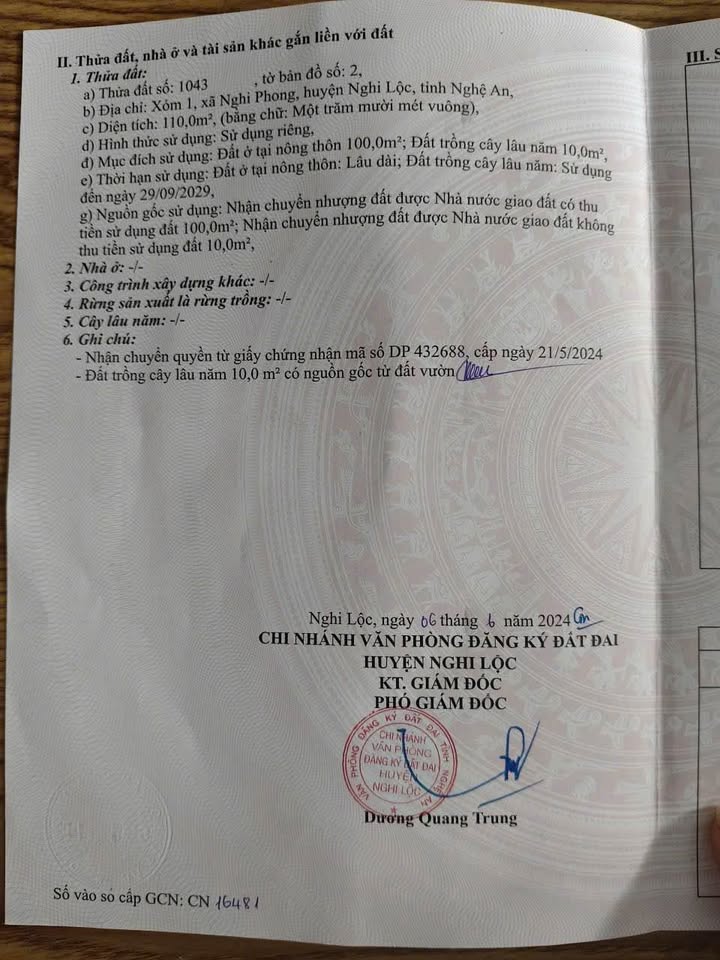 II. Thửa đất, nhà ở và tài sản khác gắn liền với đất
1. Thửa đất:
a) Thửa đất số: 1043 , tờ bản đồ số: 2,
b) Địa chỉ: Xóm 1, xã Nghi Phong, huyện Nghi Lộc, tỉnh Nghệ An,
c) Diện tích: 110,0m², (bằng chữ: Một trăm mười mét vuông),
d) Hình thức sử dụng: Sử dụng riêng,
đ) Mục đích sử dụng: Đất ở tại nông thôn 100,0m²; Đất trồng cây lâu năm 10,0m²,
e) Thời hạn sử dụng: Đất ở tại nông thôn: Lâu dài; Đất trồng cây lâu năm: Sử dụng
đến ngày 29/09/2029,
g) Nguồn gốc sử dụng: Nhận chuyển nhượng đất được Nhà nước giao đất có thu
tiền sử dụng đất 100,0m²; Nhận chuyển nhượng đất được Nhà nước giao đất không
thu tiền sử dụng đất 10,0m²,
2. Nhà ở: -/-
3. Công trình xây dựng khác: -/-
4. Rừng sản xuất là rừng trồng: -/-
5. Cây lâu năm: -/-
6. Ghi chú:
- Nhận chuyển quyền từ giấy chứng nhận mã số DP 432688, cấp ngày 21/5/2024
- Đất trồng cây lâu năm 10,0 m² có nguồn gốc từ đất vườn
Nghi Lộc, ngày 06 tháng 6 năm 2024
CHI NHÁNH VĂN PHÒNG ĐĂNG KÝ ĐẤT ĐAI
HUYỆN NGHI LỘC
KT. GIÁM ĐỐC
PHÓ GIÁM ĐỐC
VĂN PHÒNG ĐĂNG KÝ ĐẤT ĐAI TỈNH NGHỆ AN
CHI NHÁNH
VĂN PHÒNG
ĐĂNG KÝ ĐẤT ĐAI
HUYỆN
NGHI LỘC
Dương Quang Trung
Số vào sổ cấp GCN: CN 16481
III. S